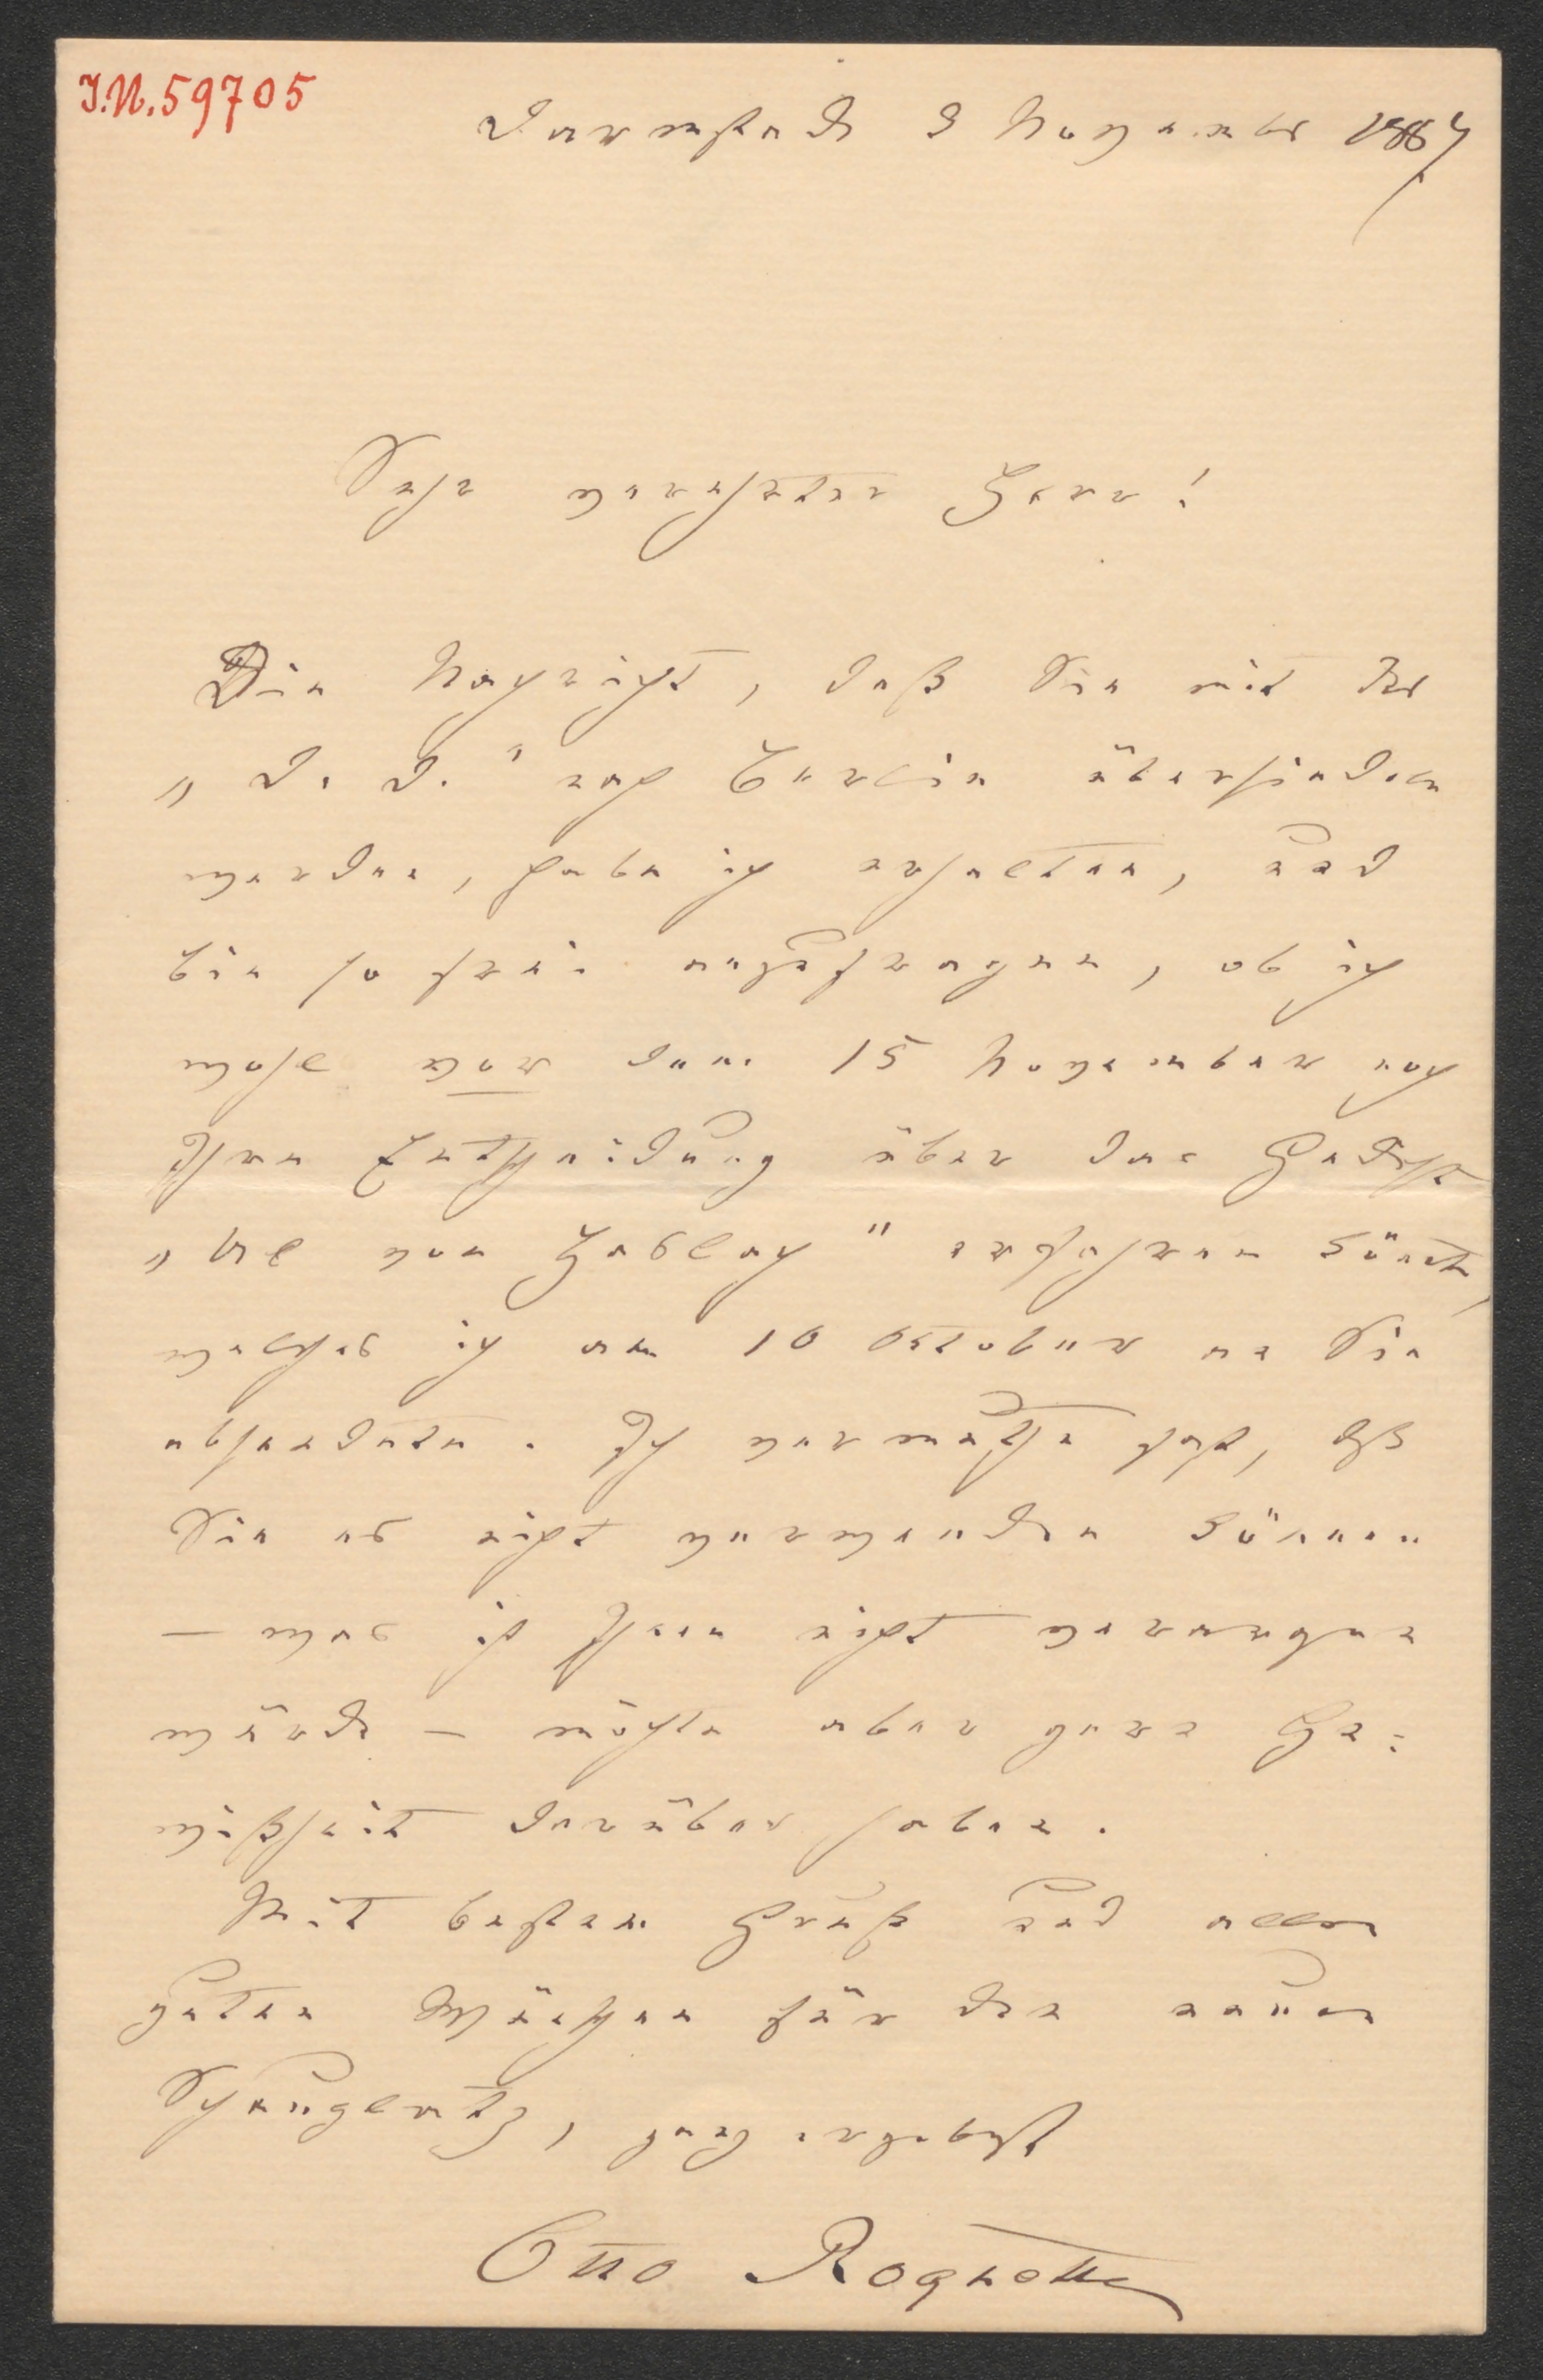 I.N. 59705
Darmstadt 9 November 1887
Sehr verehrter Herr!
Die Nachricht, daß Sie mit der
„D. D." nach Berlin übersiedeln
werden, habe ich erhalten, und
bin so frei anzufragen, ob ich
wohl vor dem 15 November noch
Ihre Entscheidung über das Gedicht
von Haslach" erfahren könnte,
welches ich am 16 Oktober an Sie
absendete. Ich vermuthe fast, daß
Sie es nicht verwenden können
– was ich Ihnen nicht verargen
würde – möchte aber gern Ge=
wißheit darüber haben.
Mit bestem Gruß und allen
guten Wünschen für den neuen
Schauplatz, ganz ergebenst
Otto Roquette